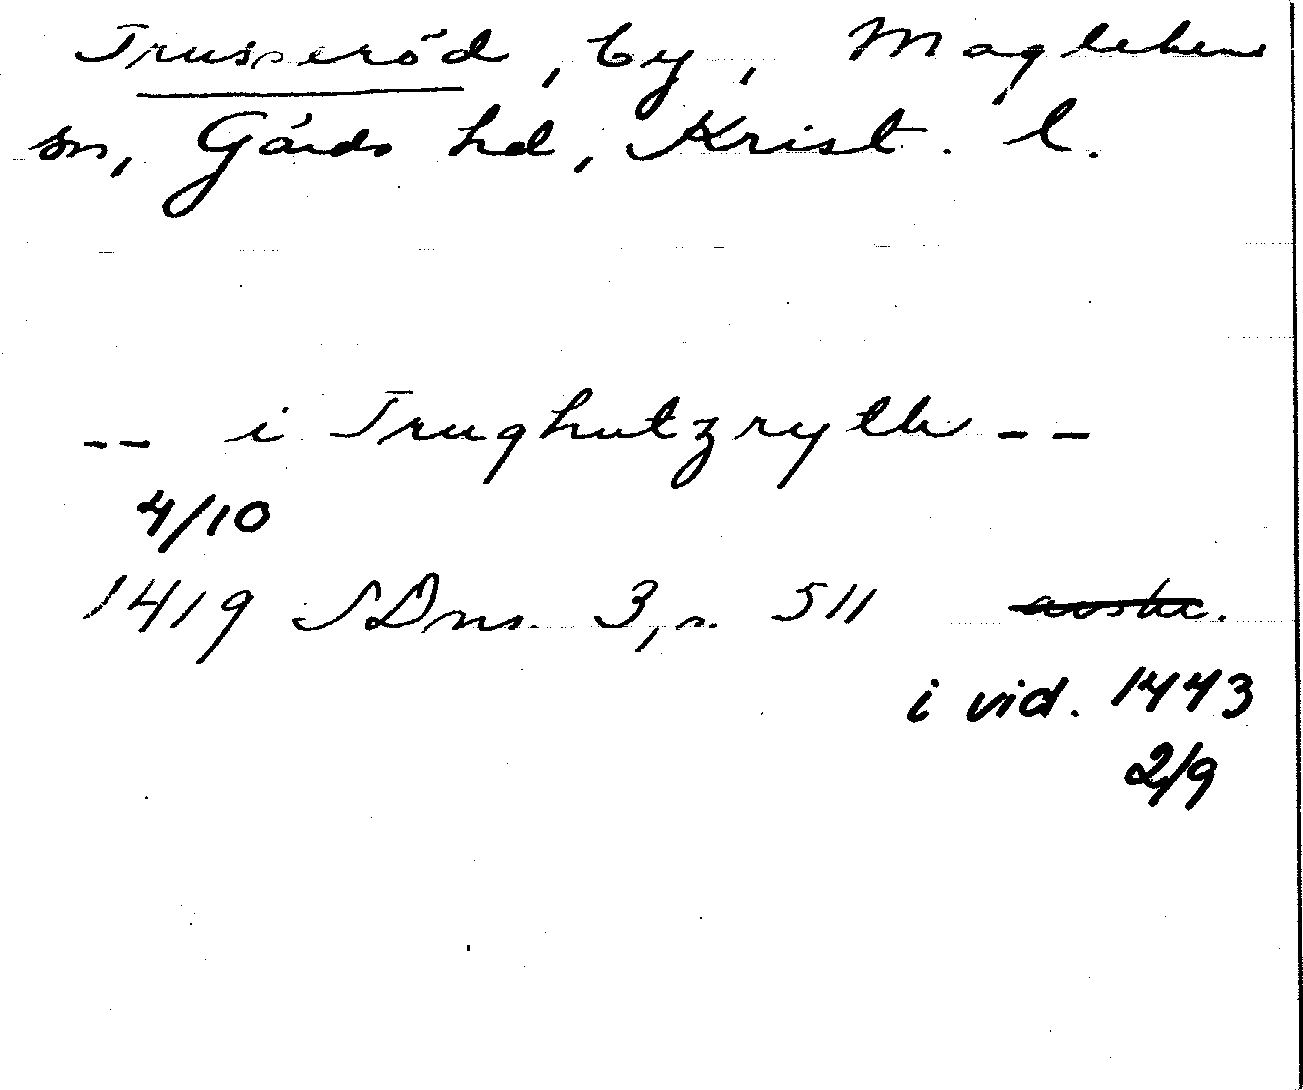 Trusseröd, by, Maglehem
sn, Gärds hd, Krist. l.
-- i Trughutzrythe --
4/10
1419 SDns. 3, s. 511 avskr.
i vid. 1443
2/9